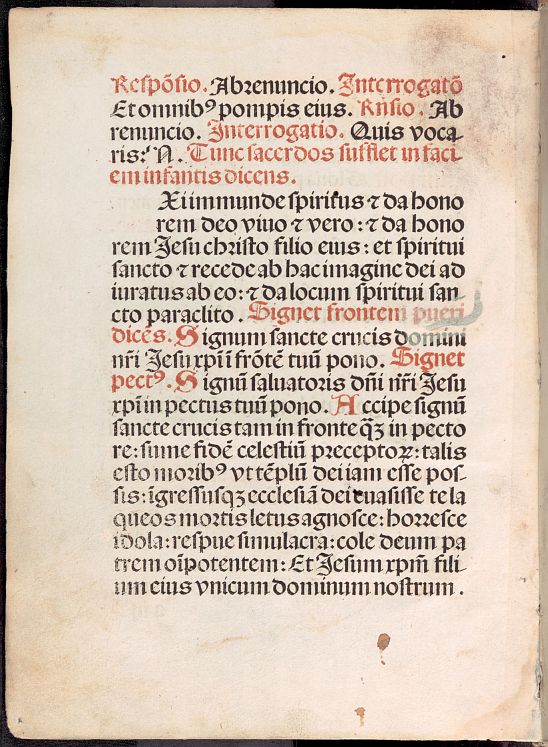 Respōsio. Abrenuncio. Interrogatō
Et omnibꝰ pompis eius. Rñsio. Ab
renuncio. Interrogatio. Quis voca
ris: N. Tunc sacerdos sufflet in faci
em infantis dicens.
Xi immunde spiritus ⁊ da hono
rem deo viuo ⁊ vero: ⁊ da hono
rem Jesu christo filio eius: et spiritui
sancto ⁊ recede ab hac imagine dei ad
iuratus ab eo: ⁊ da locum spiritui san
cto paraclito. Signet frontem pueri
dicēs. Signum sancte crucis domini
nr̄i Jesu xp̄i ī frōtē tuū pono. Signet
pectꝰ. Signū saluatoris dn̄i nr̄i Jesu
xp̄i in pectus tuū pono. Accipe signū
sancte crucis tam in fronte qꝫ̄ in pecto
re: sume fidē celestiū preceptoꝝ: talis
esto moribꝰ vt tēplū dei iam esse pos
sis: īgressusqꝫ ecclesiā dei euasisse te la
queos mortis letus agnosce: horresce
idola: respue simulacra: cole deum pa
trem oīpotentem: Et Jesum xpm̄ fili
um eius vnicum dominum nostrum.